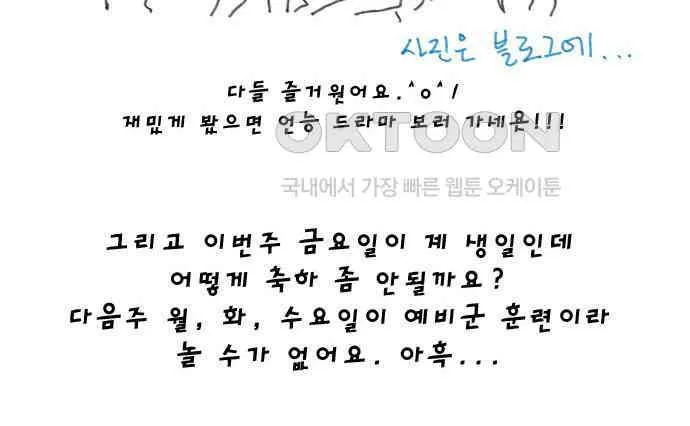 사진은 블로그에...
다들 즐거웠어요.^o^/
재밌게 봤으면 언능 드라마 보러 가세욧!!!
OKTOON
국내에서 가장 빠른 웹툰 오케이툰
그리고 이번주 금요일이 계 생일인데
어떻게 축하 좀 안될까요?
다음주 월, 화, 수요일이 예비군 훈련이라
놀 수가 없어요. 아흑...